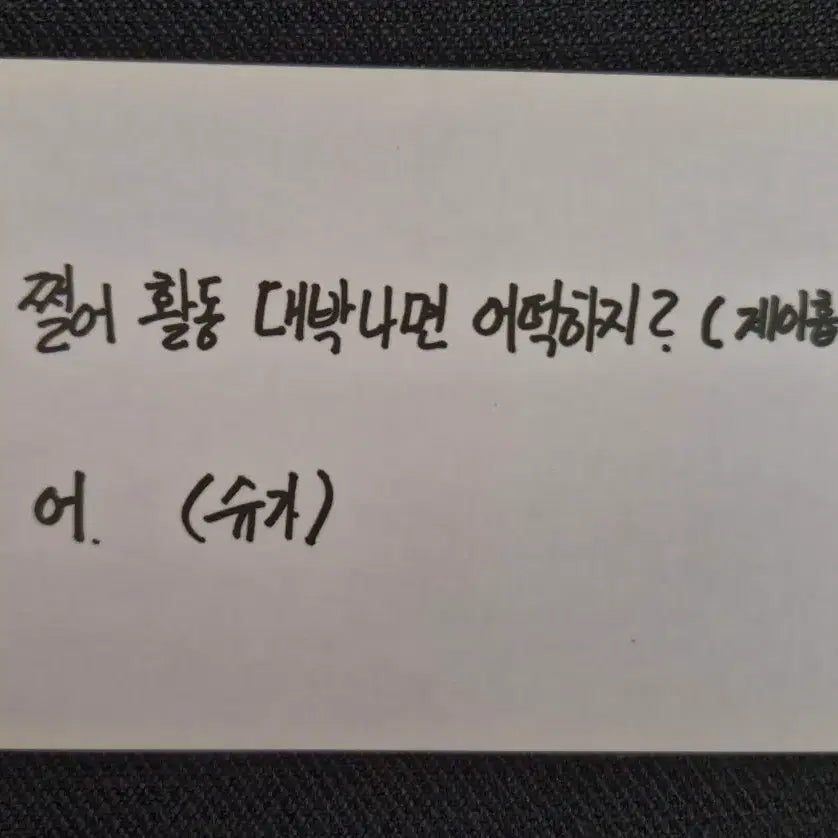 쩔어 활동 대박나면 어떡하지? (제이홉
어. (슈가)